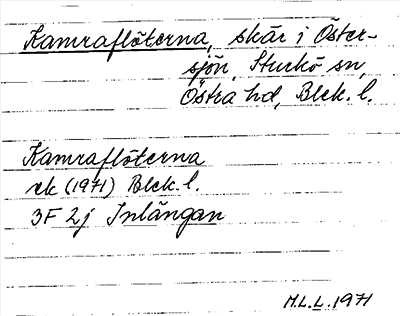 Kamraflöterna, skär i Öster-
sjön, Sturkö sn,
Östra hd, Blek. l.
Kamraflöterna
ek (1971) Blek. l.
3F 2j Inlängan
M.L.L. 1971